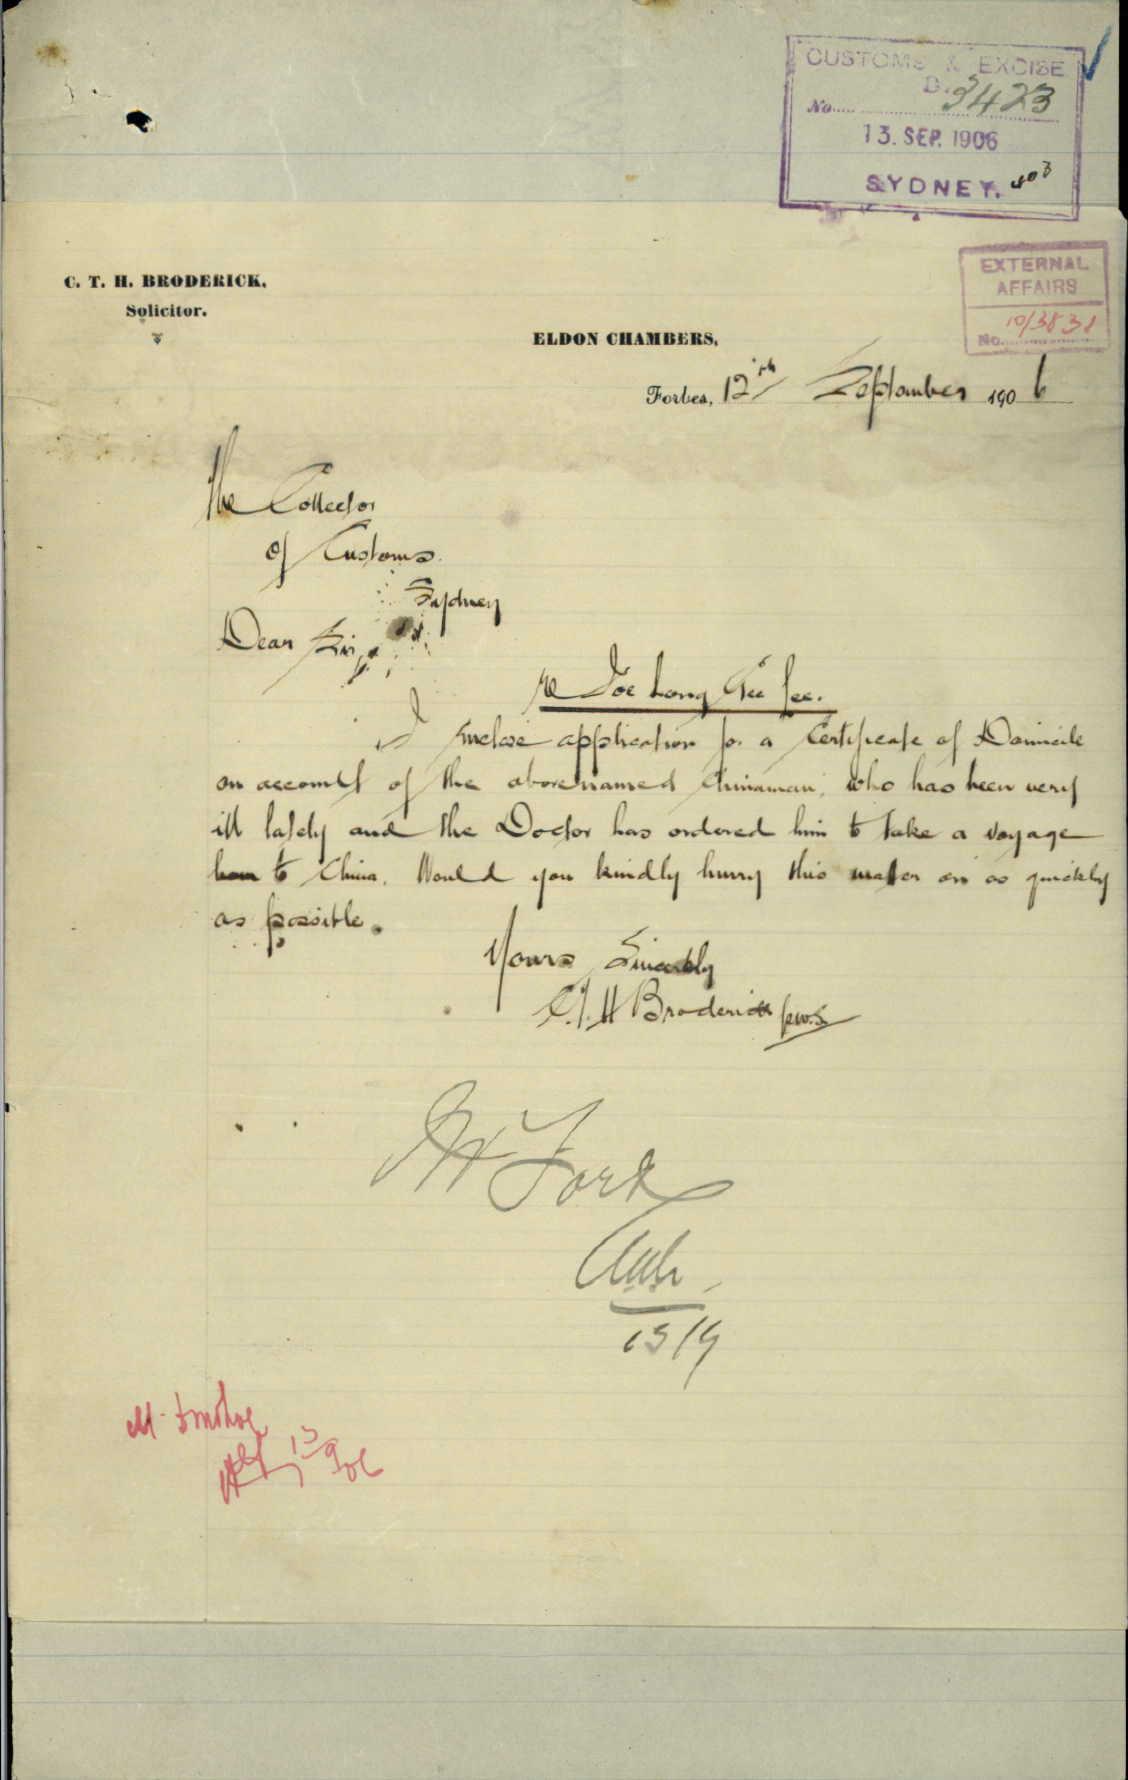 CUSTOMS & EXCISE
D. 3423
No
13. SEP. 1906
SYDNEY.
EXTERNAL
AFFAIRS
10/3838
No.
C. T. H. BRODERICK,
Solicitor.
ELDON CHAMBERS,
Forbes, 12th September 1906
The Collector
of Customs
Sydney
Dear Sir,
re Joe Long Gee Lee.
I enclose application for a Certificate of Domicile
on account of the abovenamed Chinaman, who has been very
ill lately and the Doctor has ordered him to take a voyage
to China. Would you kindly hurry this matter on as quickly
as possible.
Yours Sincerely
C.T.H Broderick
13/9
13/9/06